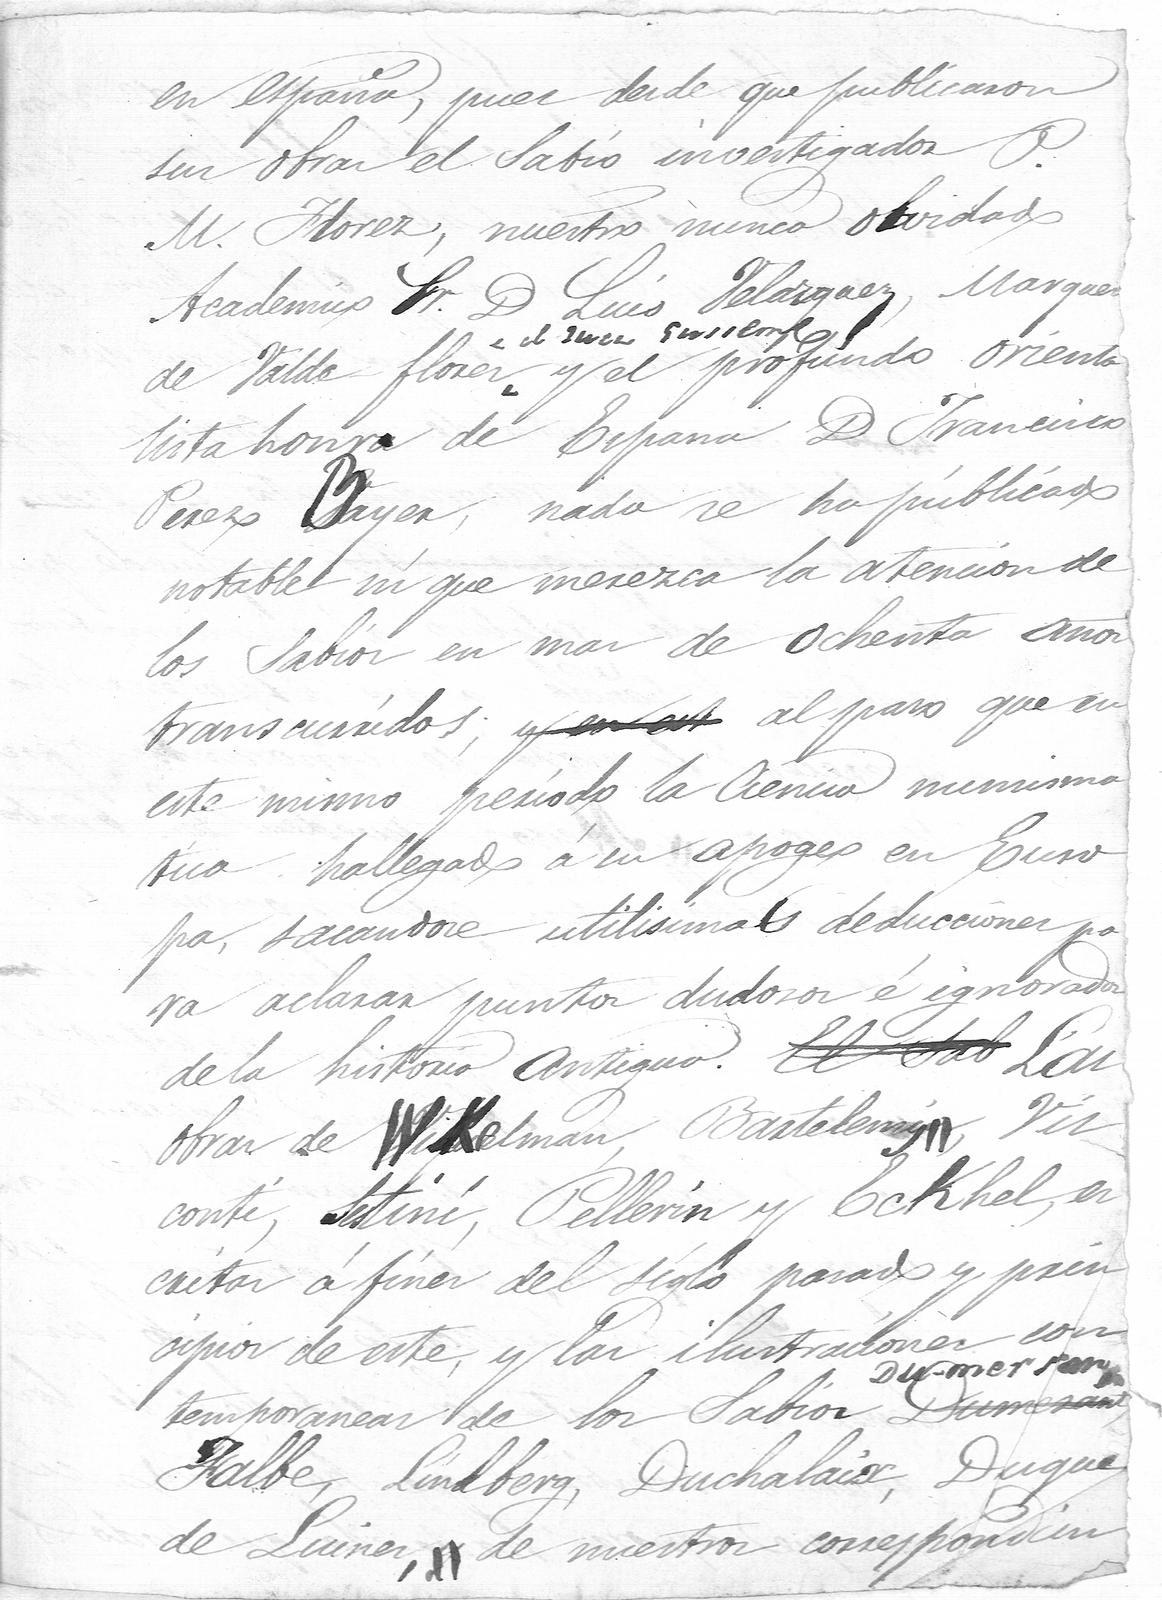 en España, pues desde que publicaron
sus obras el Sabio investigador P.
M. Florez, nuestro nunca olvidado
Academico Sr. D Luis Velazquez, Marques
de Valde flores, y el profundo orienta
lista honra de España D Francisco
Perez Bayer, nada se ha publicado
notable ni que merezca la atencion de
los Sabios en mas de ochenta años
transcurridos, y en est al paso que en
este mismo periodo la Ciencia numisma
tica hallegado á su apogeo en Euro
pa, sacandose utilisimas deducciones pa
ra aclarar puntos dudosos é ignorados
de la historia antigua. El Sab Las
obras de Wikelman, Bartelemy, Vis
conti, Sestini, Pellerin y Eckhel, es
critas á fines del siglo pasado y prin
cipios de este, y las ilustraciones con
Du-mersan,
temporaneas de los Sabios Dumesant,
Falbe, Lindberg, Duchalaix, Duque
de Luines, de nuestros correspondien